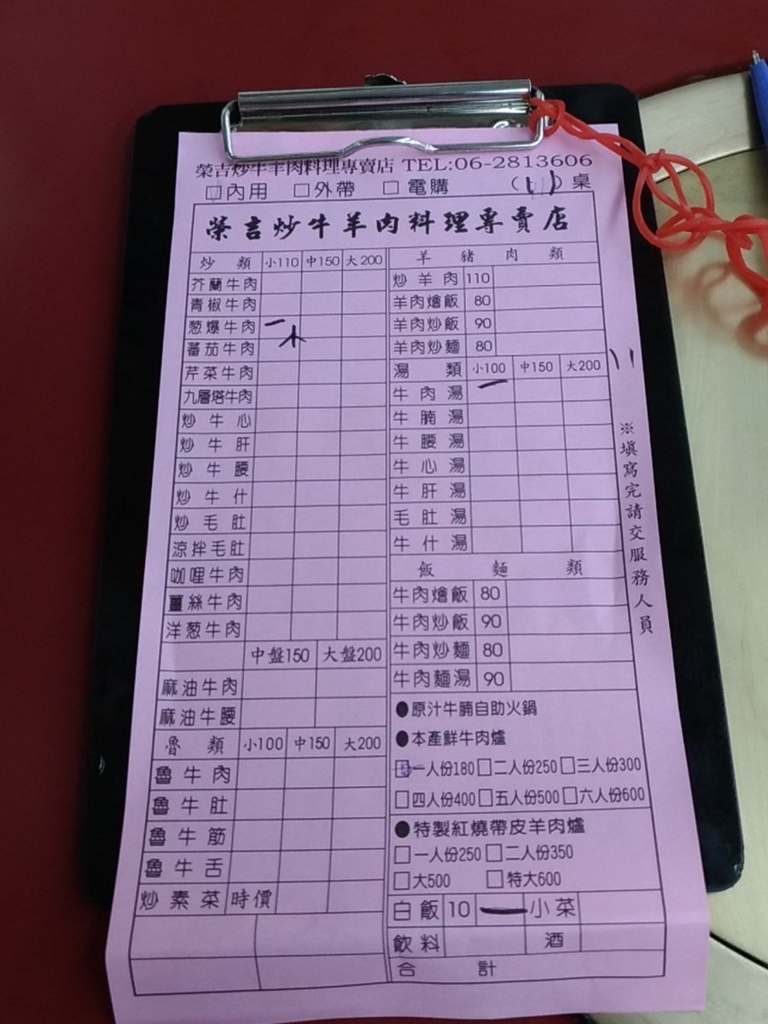 榮吉炒牛羊肉料理專賣店 TEL:06-2813606
□內用 □外帶 □電購 ( ) 桌
榮吉炒牛羊肉料理專賣店
炒類 小110 中150 大200
芥蘭牛肉
青椒牛肉
葱爆牛肉 一
蕃茄牛肉
芹菜牛肉
九層塔牛肉
炒牛心
炒牛肝
炒牛腰
炒牛什
炒毛肚
涼拌毛肚
咖哩牛肉
薑絲牛肉
洋葱牛肉
中盤150 大盤200
麻油牛肉
麻油牛腰
魯類 小100 中150 大200
魯牛肉
魯牛肚
魯牛筋
魯牛舌
炒素菜 時價
羊豬肉類
炒羊肉 110
羊肉燴飯 80
羊肉炒飯 90
羊肉炒麵 80
湯類 小100 中150 大200
牛肉湯 一
牛腩湯
牛腰湯
牛心湯
牛肝湯
毛肚湯
牛什湯
飯麵類
牛肉燴飯 80
牛肉炒飯 90
牛肉炒麵 80
牛肉麵湯 90
●原汁牛腩自助火鍋
●本產鮮牛肉爐
□一人份180□二人份250□三人份300
□四人份400□五人份500□六人份600
●特製紅燒帶皮羊肉爐
□一人份250□二人份350
□大500 □特大600
白飯 10 一 小菜
飲料 酒
合計
※填寫完請交服務人員